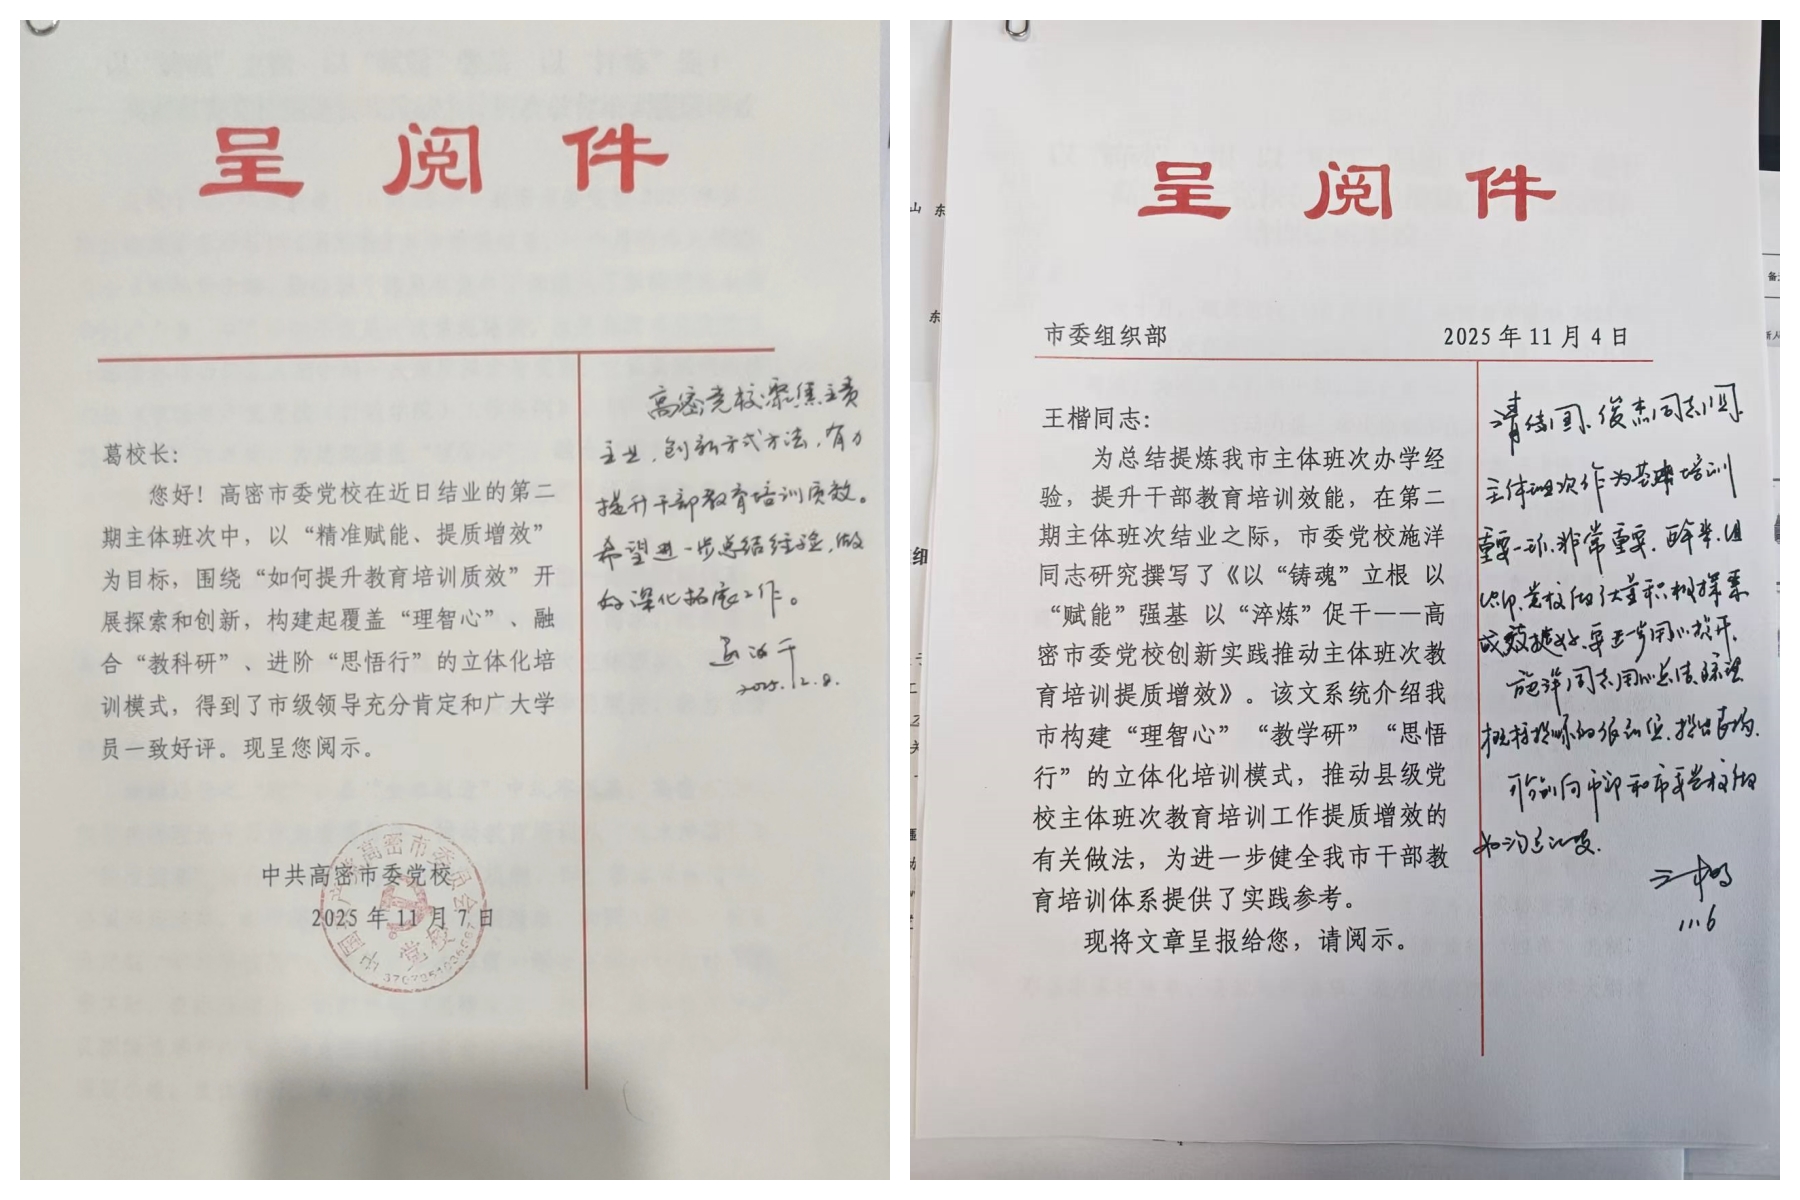 呈阅件
葛校长：
您好！高密市委党校在近日结业的第二
期主体班次中，以“精准赋能、提质增效”
为目标，围绕“如何提升教育培训质效”开
展探索和创新，构建起覆盖“理智心”、融
合“教科研”、进阶“思悟行”的立体化培
训模式，得到了市级领导充分肯定和广大学
员一致好评。现呈您阅示。
中共高密市委党校
2025年11月7日
中国共产党高密市委员会
党校
高密党校聚焦主责
主业，创新方式方法，有力
提升干部教育培训质效。
希望进一步总结经验，做
好深化拓展工作。
2025.12.8.
呈阅件
市委组织部
2025年11月4日
王楷同志：
为总结提炼我市主体班次办学经
验，提升干部教育培训效能，在第二
期主体班次结业之际，市委党校施洋
同志研究撰写了《以“铸魂”立根 以
“赋能”强基 以“淬炼”促干——高
密市委党校创新实践推动主体班次教
育培训提质增效》。该文系统介绍我
市构建“理智心”“教学研”“思悟
行”的立体化培训模式，推动县级党
校主体班次教育培训工作提质增效的
有关做法，为进一步健全我市干部教
育培训体系提供了实践参考。
现将文章呈报给您，请阅示。
请 俊杰同志阅.
主体班次作为 培训
重要一环，非常重要.
党校做了大量积极探索
成效 要进一步用心
施洋同志用心总结

可 向市 和市委党校做
好沟通汇
王楷
11.6
山东
东
组